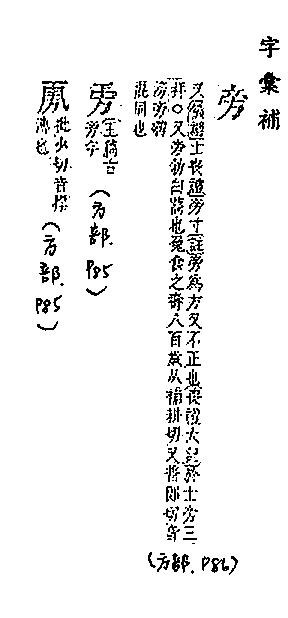 字彙補
旁
又儀禮士喪禮旁寸註旁為方又不正也喪禮大記於士旁三
拜○又旁勃白蒿也兔食之壽八百歲从補耕切又將郎切音
旁旁礴
混同也
(方部.P86)
玉篇古
旁字
(方部.P85)
批少切音
也
(方部.P85)